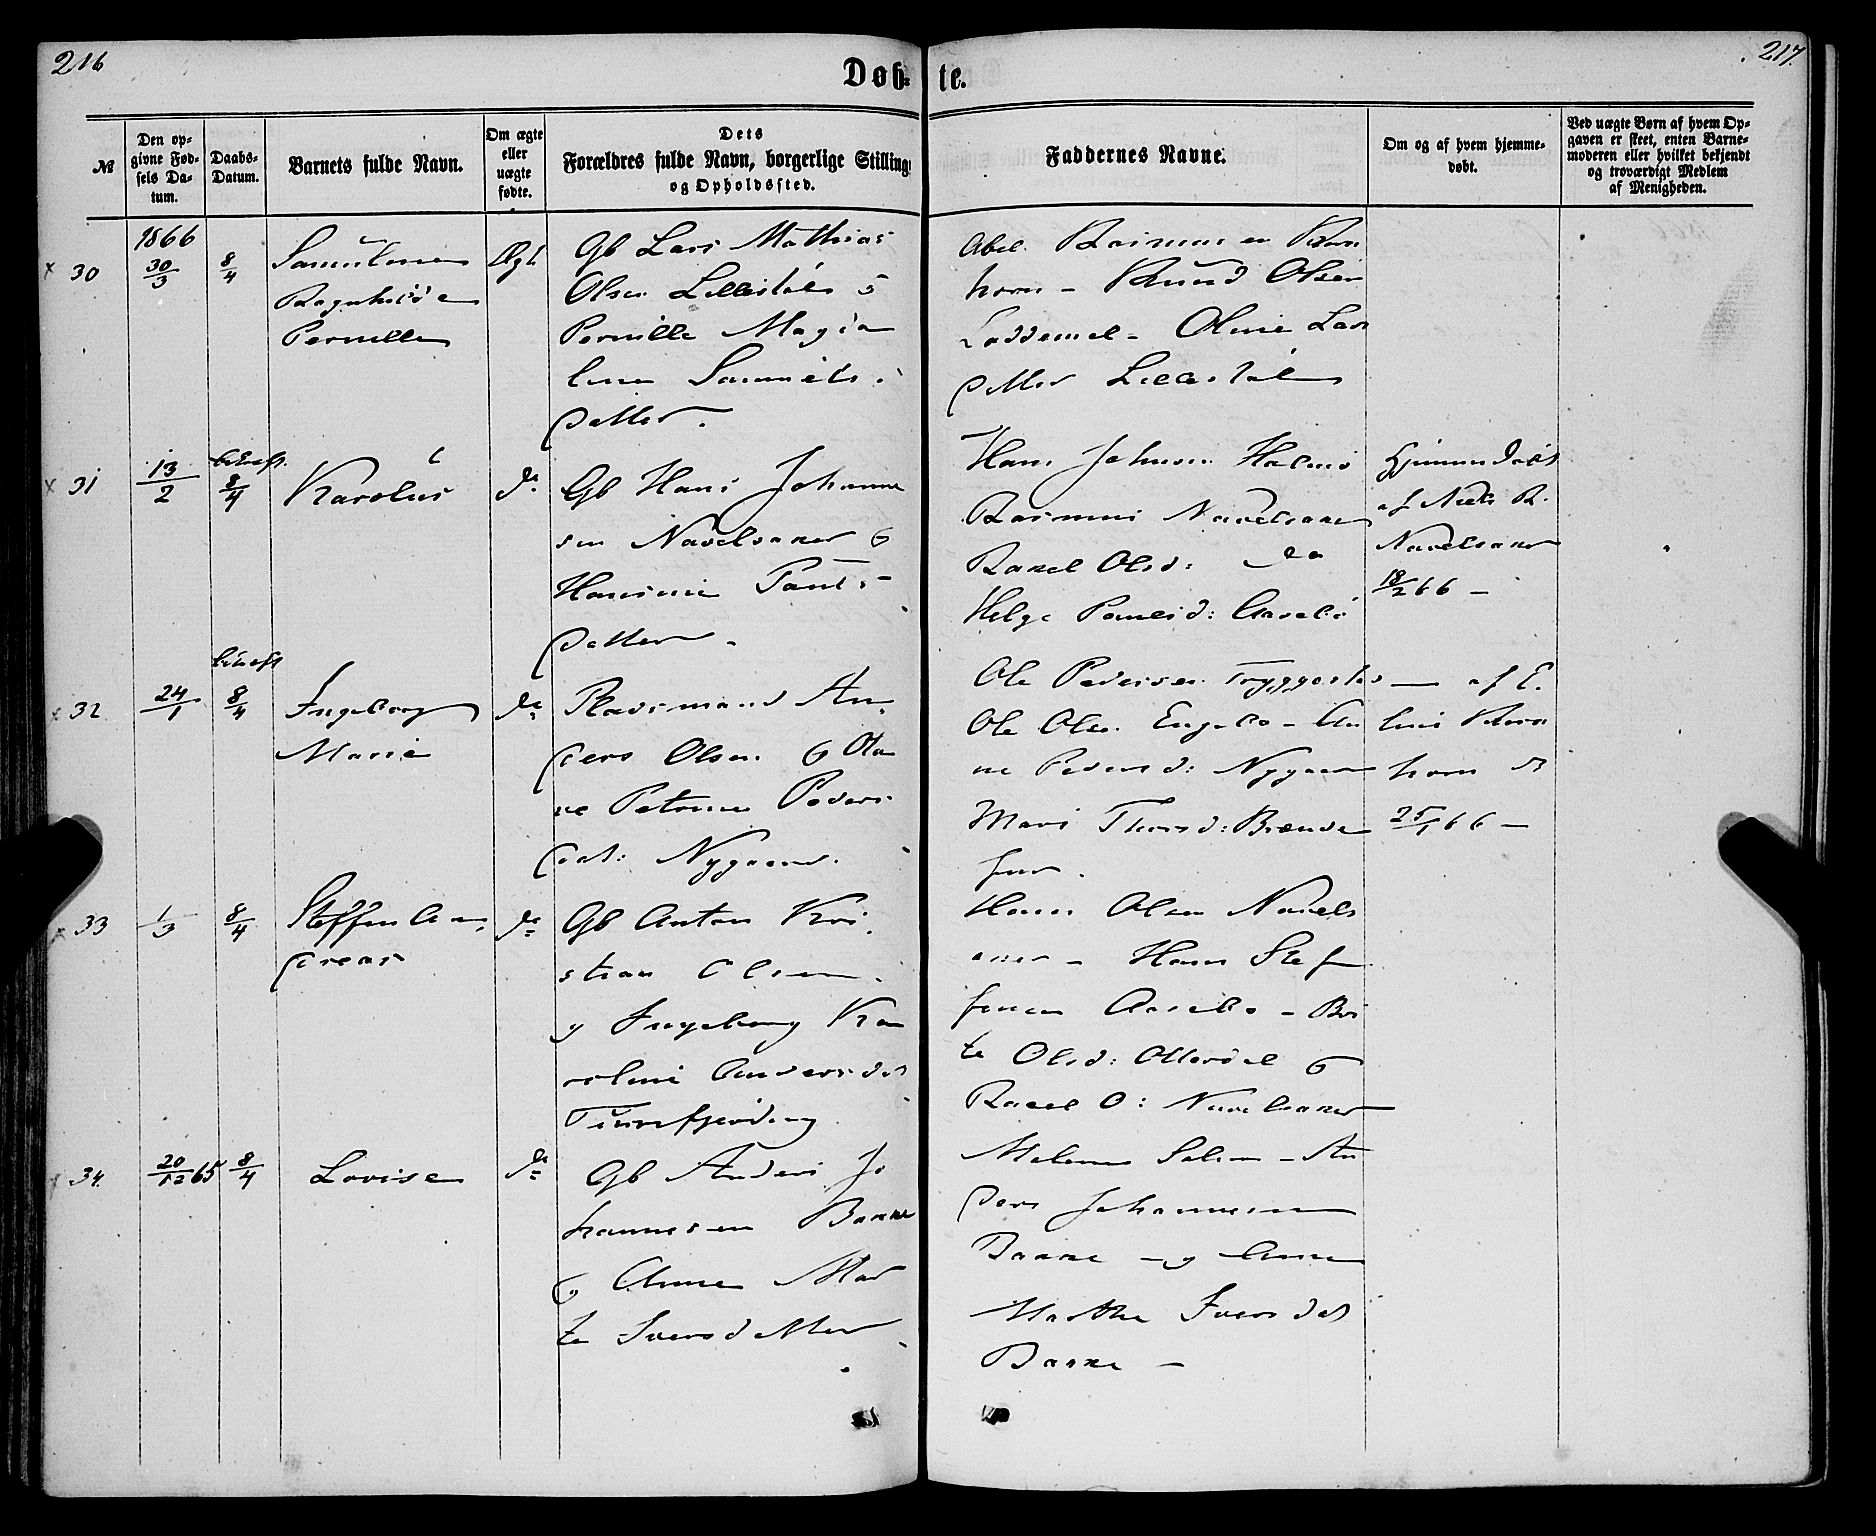 216
Døb-
te.
217.
№
Den op-
givne Fød-
sels Da-
tum.
Daabs-
Datum.
Barnets fulde Navn.
Om ægte
eller
uægte
fødte.
Dets
Forældres fulde Navn, borgerlige Stilling
og Opholdssted.
Faddernes Navne.
Om og af hvem hjemme-
døbt.
Ved uægte Børn af hvem Op-
gaven er skeet, enten Barne-
moderen eller hvilket bekjendt
og troværdigt Medlem
af Menigheden.
1866
x 30
30/3
8/4
Ragnhilde
Pernille
Ægt
Gb Lars Mathias
Olsen
Pernille Magda
lena Samuels
datter.
Abel Rasmus en
horn - Knud Olsen
Loddemel - Oline Lars
datter
x 31
13/2
bekræft.
8/4
Karolus
do
Gb Hans Johanne
sen Navelsaker &
Hansine Pauls
datter -
Hans Johnsen
Rasmus Navelsaker
Rakel Olsd: do
Helge Paulsd: Aasebø
Hjemmedøbt
af Niels R.
Navelsaker
18/2 66 -
x 32
24/1
bekræft
8/4
Ingeborg
Marie
do
Pladsmand An
ders Olsen & Ola
ve Petrine Peders
dat: Nygaard.
Ole Pedersen Tryggestad
Ole Olsen Engebø - An
ne Pedersd: Nygaard
Mari Thorsd: Brende
- af E.
horn d
25/1 66 -
x 33
1/3
8/4
Steffen An
dreas
do
Gb Anton Kri
stian Olsen
og Ingeborg Ka
roline Andersdat
Hans Olsen Navels
aker - Hans Stef
fensen Aasebø - Bri
te Olsd: Otterdal &
Rakel O: Navelsaker
x 34
20/12 65
8/4
Lovise
do
Gb Anders Jo
hannesen Bakke
& Anne Mar
te Iversdatter
An
ders Johannesen
Bakke - og Anne
Marthe Iversdat
Bakke -